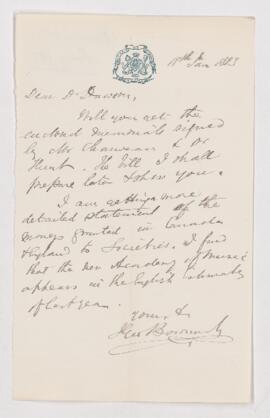 18th Jan 1883
Dear Dr Dawson,
Will you get the
enclosed memorials signed
by Mr Chauveau & Dr
Hunt. The Bill I shall
prepare later & show you.
I am getting a more
detailed statement of the
moneys granted in Canada
& England to Societies. I find
that the new Academy of Music
appears in the English estimates
of last year.
Yours,